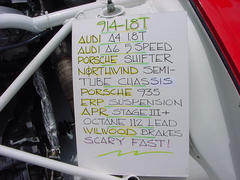 914-1.8T
AUDI A4 1.8T
AUDI A6 5 SPEED
PORSCHE SHIFTER
NORTHWIND SEMI-
TUBE CHASSIS
PORSCHE 935
ERP SUSPENSION
APR STAGE III+
OCTANE 112 LEAD
WILWOOD BRAKES
SCARY FAST!